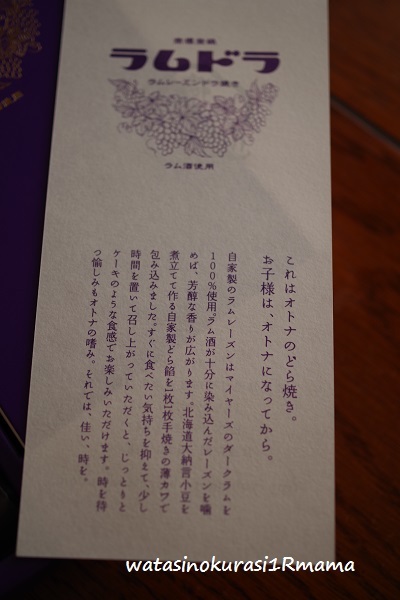 商標登録
ラムドラ
ラムレーズンドラ焼き
ラム酒使用
これはオトナのどら焼き。
お子様は、オトナになってから。
自家製のラムレーズンはマイヤーズのダークラムを
100%使用。ラム酒が十分に染み込んだレーズンを噛
めば、芳醇な香りが広がります。北海道大納言小豆を
煮立てて作る自家製どら餡を1枚1枚手焼きの薄カワで
包み込みました。すぐに食べたい気持ちを抑えて、少し
時間を置いて召し上がっていただくと、じっとりと
ケーキのような食感でお楽しみいただけます。時を待
つ愉しみもオトナの嗜み。それでは、佳い、時を。
watasinokurasi1Rmama